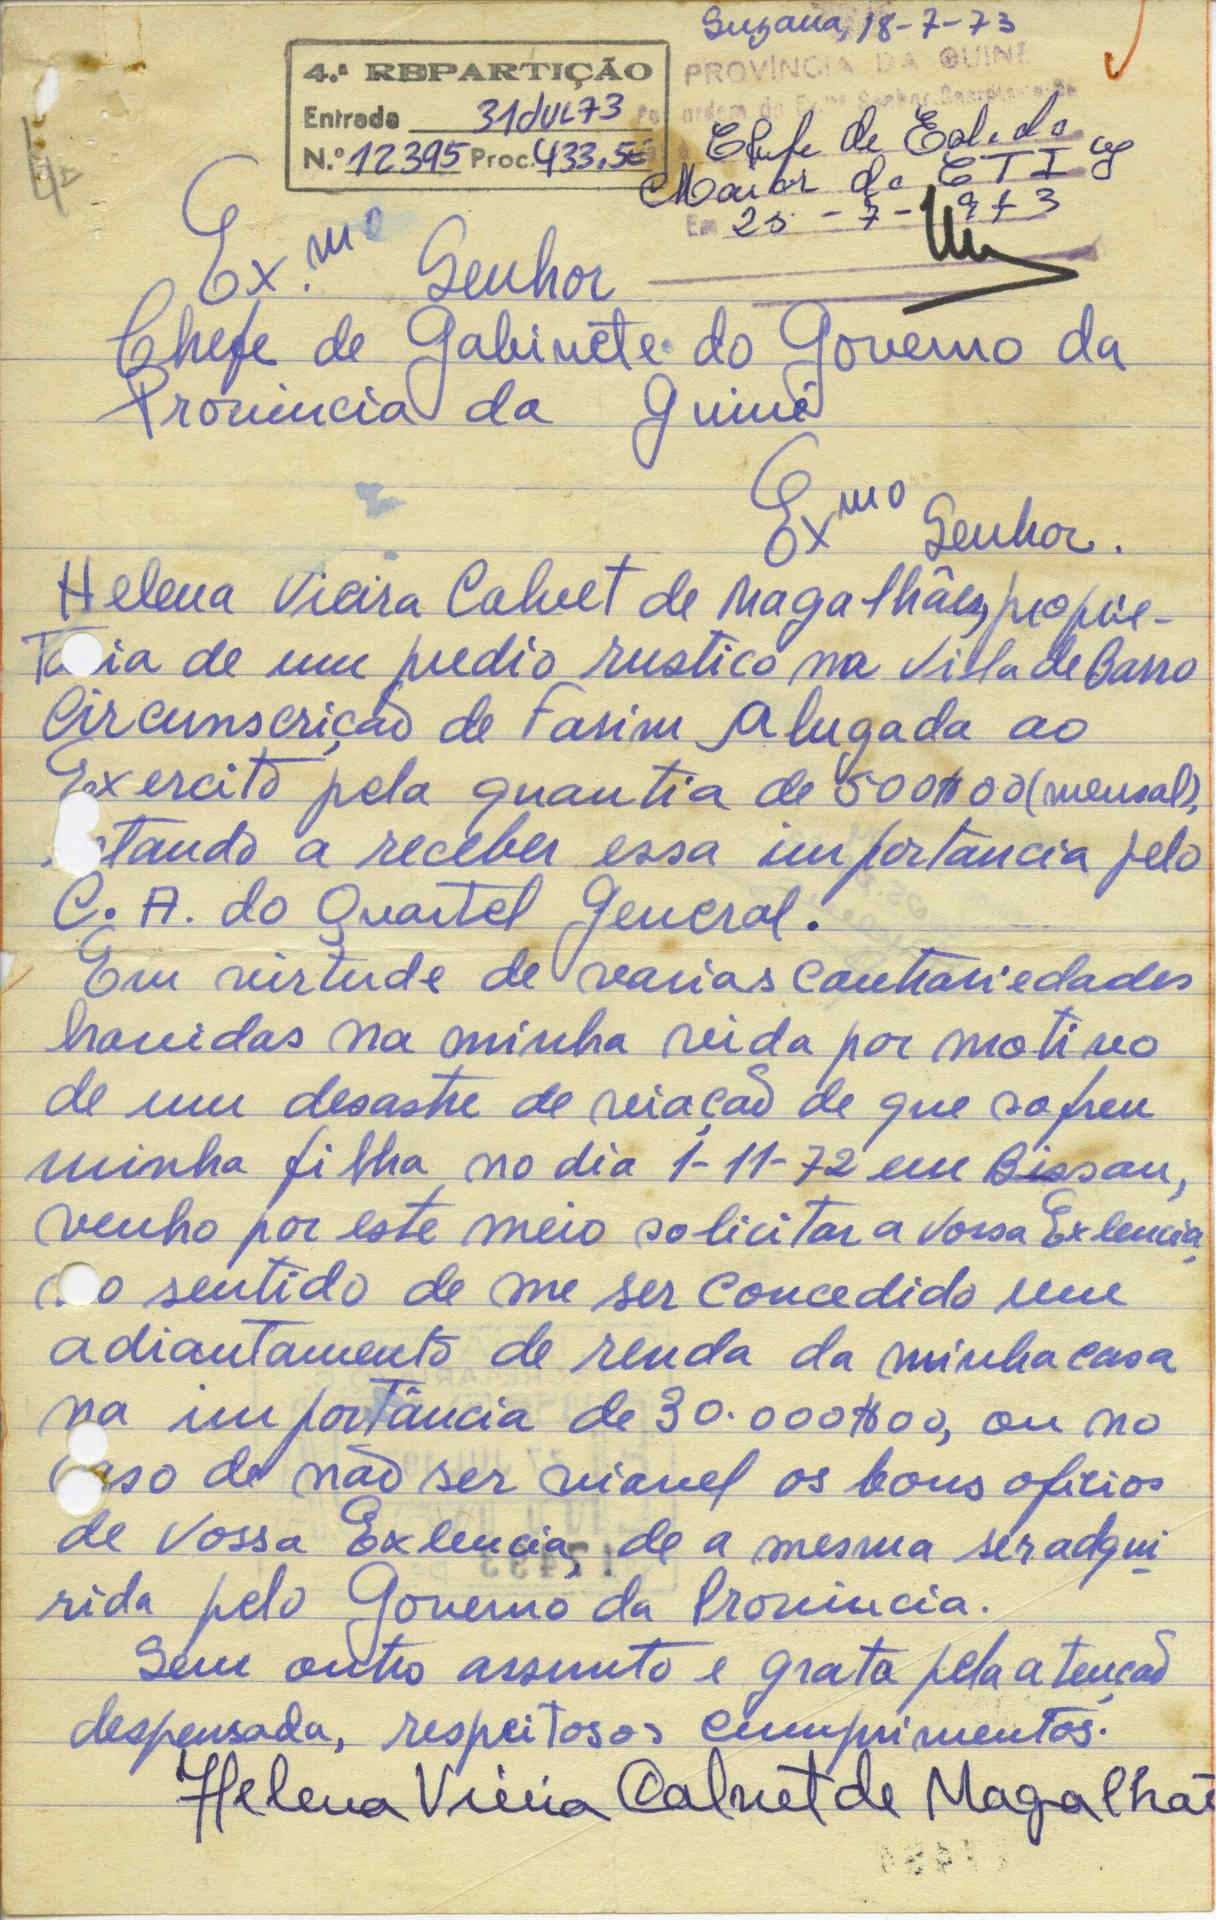 Suzana, 18-7-73
4.ª REPARTIÇÃO
Entrada 31JUL73
N.º 12395 Proc. 433.5
PROVÍNCIA DA GUINÉ
Chefe de Estado
Maior do CTIG
Em 25-7-1973
Ex.mo Senhor
Chefe de Gabinete do Governo da
Provincia da Guiné
Exmo Senhor.
Helena Vieira Calvet de Magalhães, proprie-
taia de um predio rustico na Vila de Barro
Circunscrição de Farim Alugada ao
Exercito pela quantia de 500$00 (mensal),
tando a receber essa importancia pelo
C. A. do Quartel General.
Em virtude de varias contrariedades
havidas na minha vida por motivo
de um desastre de viação de que sofreu
minha filha no dia 1-11-72 em Bissau,
venho por este meio solicitar a Vossa Exlencia,
no sentido de me ser concedido um
adiantamento de renda da minha casa
na importância de 30.000$00, ou no
caso de não ser viavel os bons oficios
de Vossa Exlencia, de a mesma ser adqui
rida pelo Governo da Provincia.
Sem outro assunto e grata pela atenção
despensada, respeitosos cumprimentos.
Helena Vieira Calvet de Magalhãe